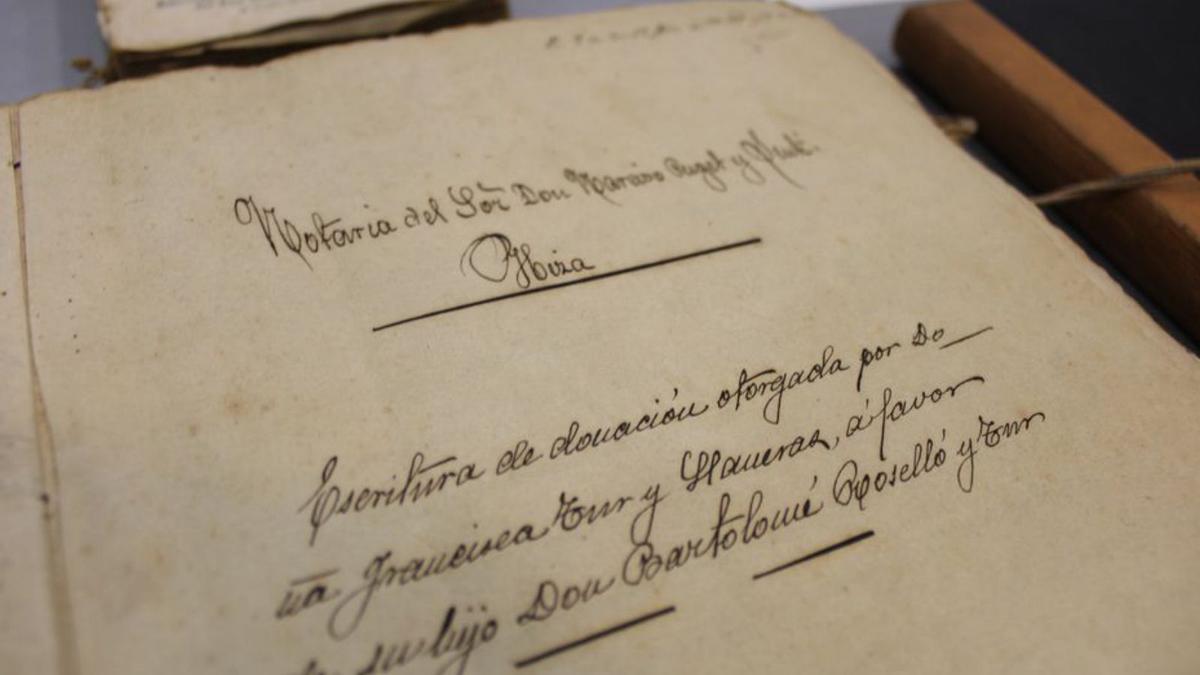 Notaria del Sor Don Narciso Puget y
Ybiza
Escritura de donación otorgada por Do_
ña Francisca Tur y Llaneras, á favor
de su hijo Don Bartolomé Roselló y Tur